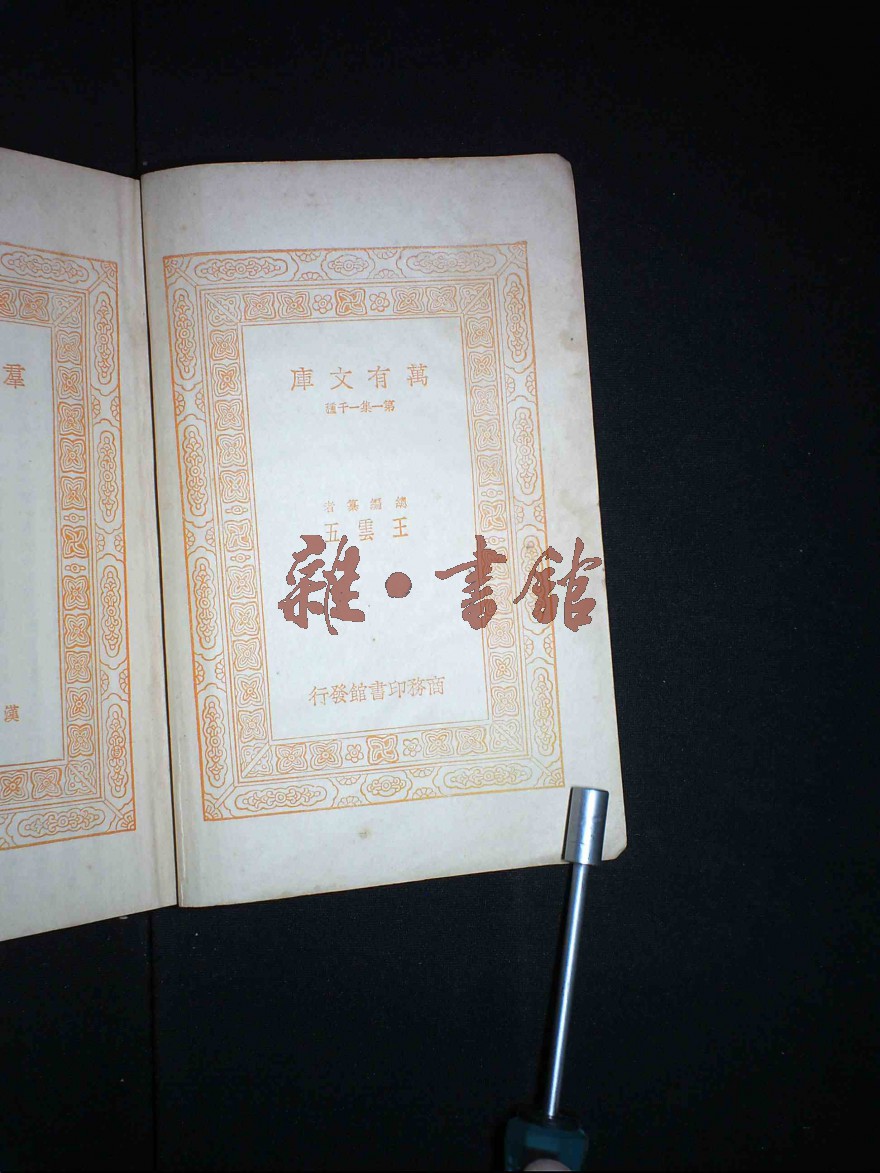 萬有文庫
第一集一千種
總編纂者
王雲五
商務印書館發行
羣
漢
雜•書館